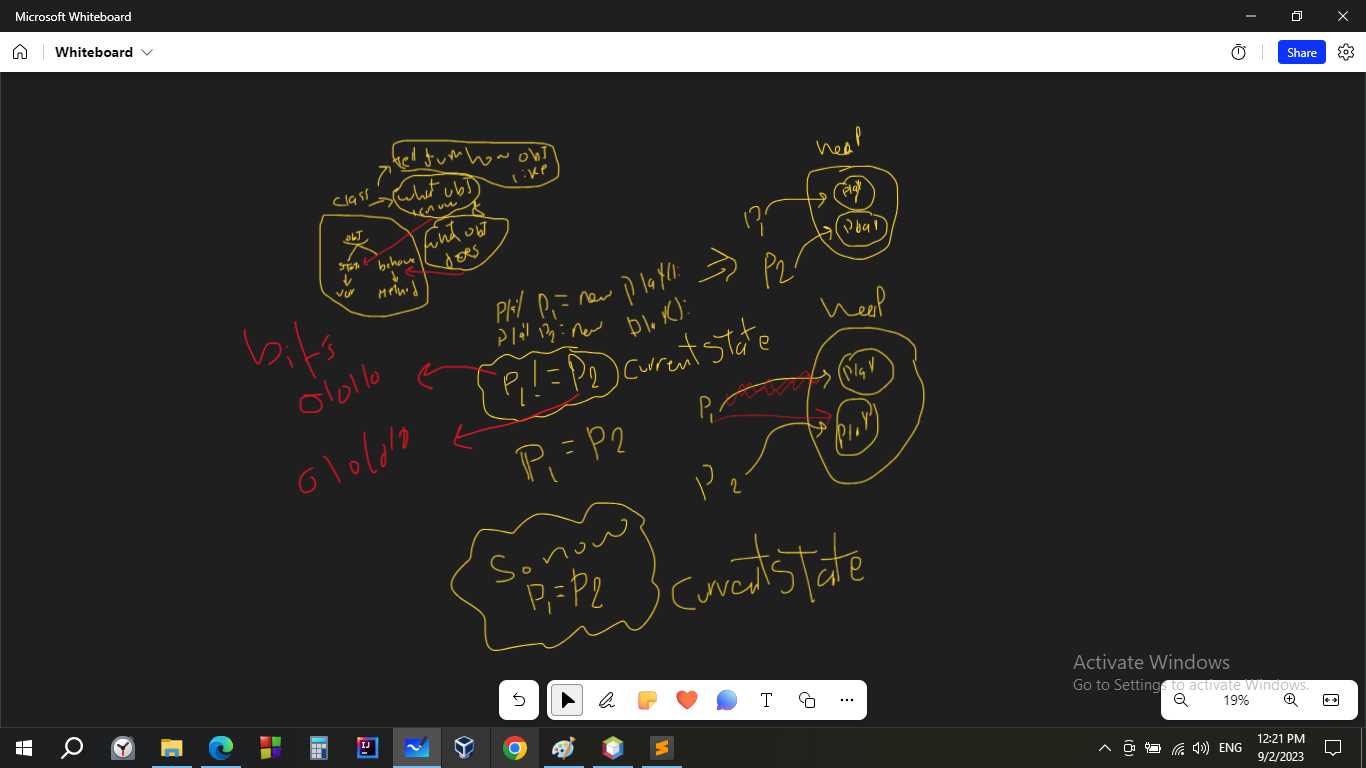 Microsoft Whiteboard
Whiteboard
Share
heap
tell JVM how obj
like
class
what obj
know
what obj
does
obj
state
behave
var
method
play
play
P1
P2
play P1 = new play();
play P2 = new play();
heap
bit's
010110
P1 != P2
current state
play
play
P1
P2
P1 = P2
So now
P1 = P2
current state
Activate Windows
Go to Settings to activate Windows.
19%
ENG
12:21 PM
9/2/2023